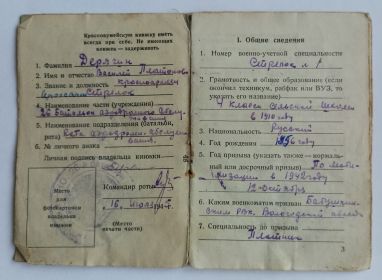 Красноармейскую книжку иметь
всегда при себе. Не имеющих
книжек — задерживать
1. Фамилия Дерягин
2. Имя и отчество Василий Платонович
3. Звание и должность красноармеец
Стрелок
4. Наименование части (учреждения)
26 Батальон аэродромного обслу-
5. Наименование подразделения (батальон,
рота) Рота аэродромного обслужи-
6. № личного знака
Личная подпись владельца книжки
Место
для
фотокарточки
владельца
книжки
Командир роты
16. июля 194
(Место
печати части)
I. Общие сведения
1. Номер военно-учетной специальности
Стрелок № 1
2. Грамотность и общее образование (если
окончил техникум, рабфак или ВУЗ, то
указать его название)
4 класса сельской школы
в 1910 году
3. Национальность Русский
4. Год рождения
5. Год призыва (указать также — нормаль-
ный или досрочный призыв) По моби-
лизации в 1942 году
12 октября
6. Каким военкоматом призван Бабушкин-
ским РВК. Вологодской области
7. Специальность до призыва
Плотник
3